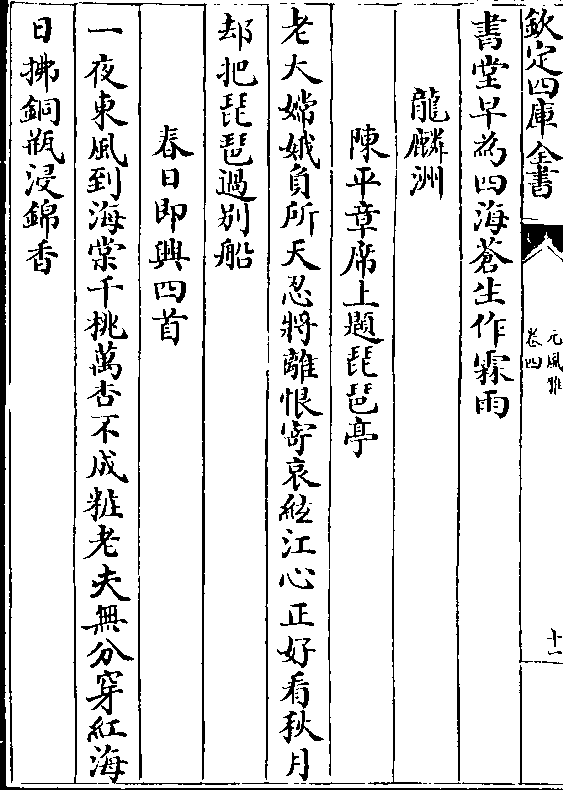 欽定四庫全書
元風雅
卷四
十一
書堂早為四海蒼生作霖雨
龍麟洲
陳平章席上題琵琶亭
老大嫦娥負所天忍將離恨寄哀絃江心正好看秋月
却把琵琶過别船
春日即興四首
一夜東風到海棠千桃萬杏不成粧老夫無分穿紅海
日拂銅瓶浸錦香